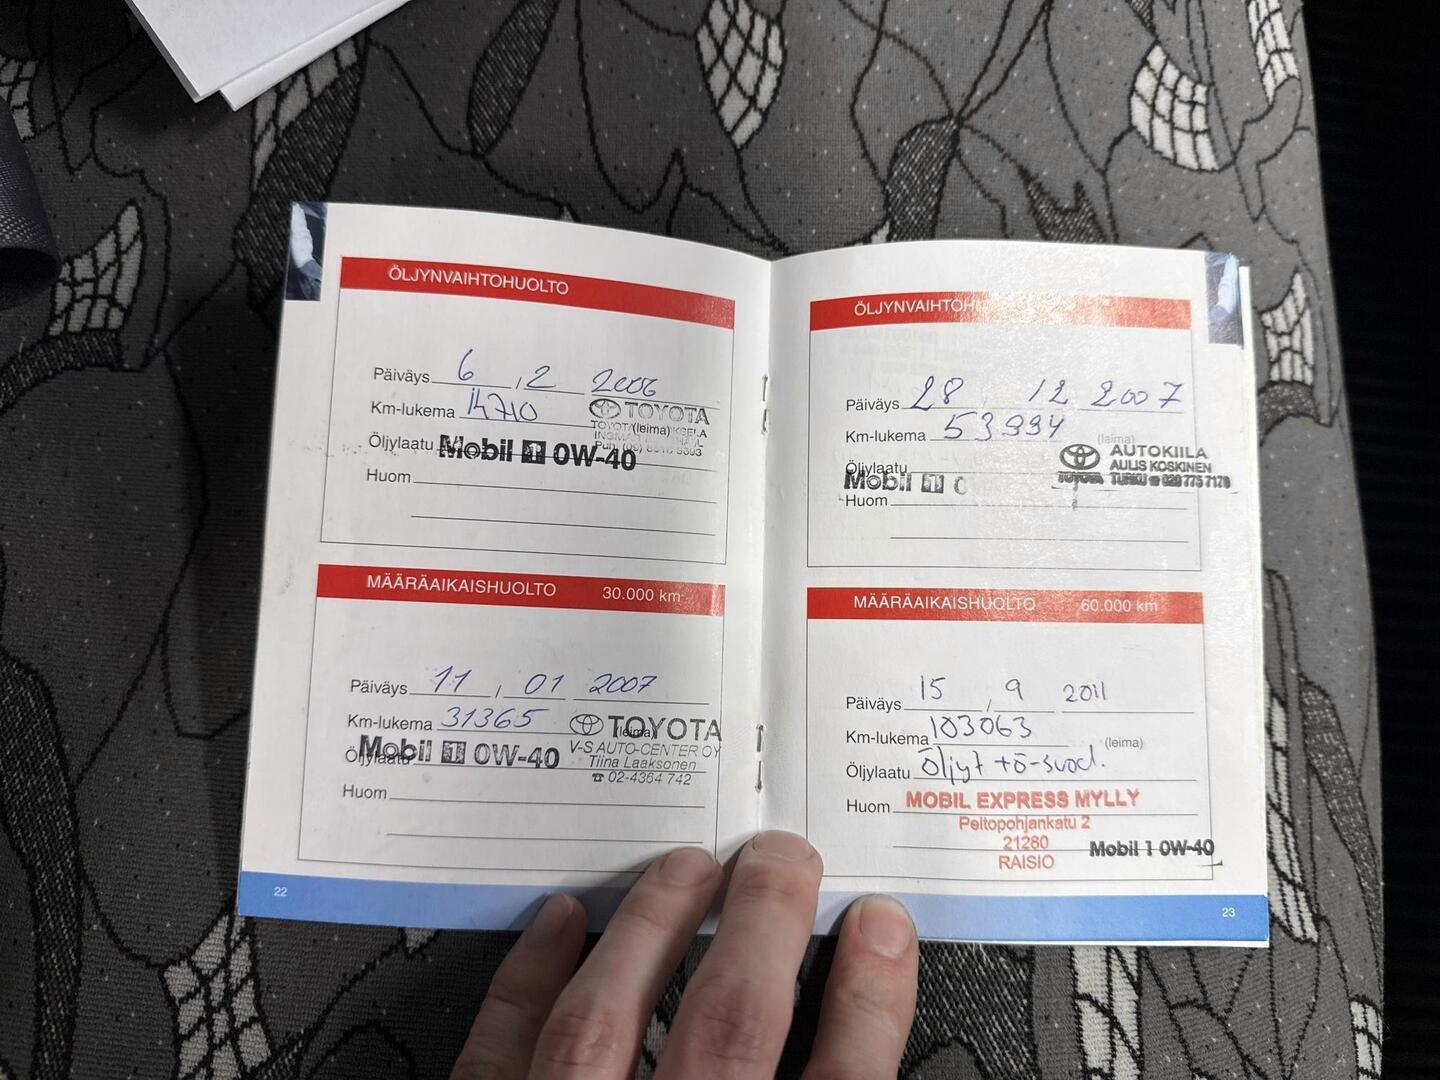 ÖLJYNVAIHTOHUOLTO
Päiväys 6 , 2 2006
Km-lukema 14710
TOYOTA
(leima)
Öljylaatu Mobil 1 0W-40
Huom
MÄÄRÄAIKAISHUOLTO 30.000 km
Päiväys 11 , 01 2007
Km-lukema 31365
TOYOTA
(leima)
V-S AUTO-CENTER OY
Öljylaatu Mobil 1 0W-40
Tiina Laaksonen
☎ 02-4364 742
Huom
22
ÖLJYNVAIHTOH
Päiväys 28 12 2007
Km-lukema 53994
(leima)
AUTOKIILA
Öljylaatu
AULIS KOSKINEN
Mobil 1 0
TOYOTA TURKU ☎ 020 775 7178
Huom
MÄÄRÄAIKAISHUOLTO 60.000 km
Päiväys 15 , 9 2011
Km-lukema 103063
(leima)
Öljylaatu Öljyt +ö-suod.
Huom MOBIL EXPRESS MYLLY
Peltopohjankatu 2
21280
RAISIO
Mobil 1 0W-40
23